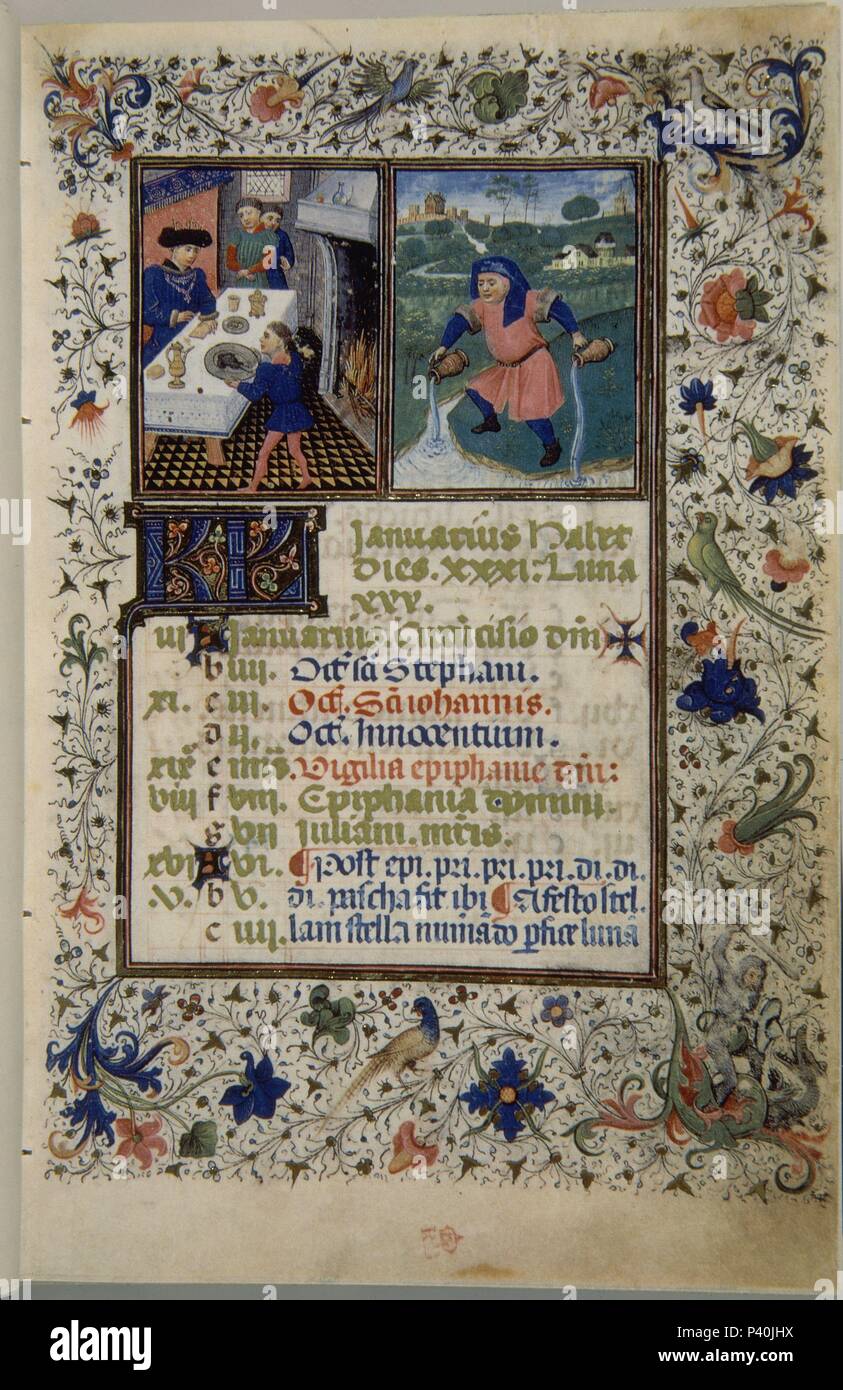 KL
Januarius habet
dies. xxxi. Luna
xxx.
iii A Januarius Circūcisio dm̄
b iiii. Oct̄ sc̄i Stephani.
xi. c iii. Oct̄. Sc̄i iohannis.
d ii. Oct̄. Innocentium.
xix e Vigilia epiphanie dm̄:
viii f viii. Epiphania domini.
g vii iuliani. mr̄is.
xvi A vi. Post epi. pri. pri. pri. di. di.
v. b v. di. pascha fit ibi A festo stel
c iiii. lam stella numādo pfice lunā
alamy
www.alamy.com
Image ID: P40JHX